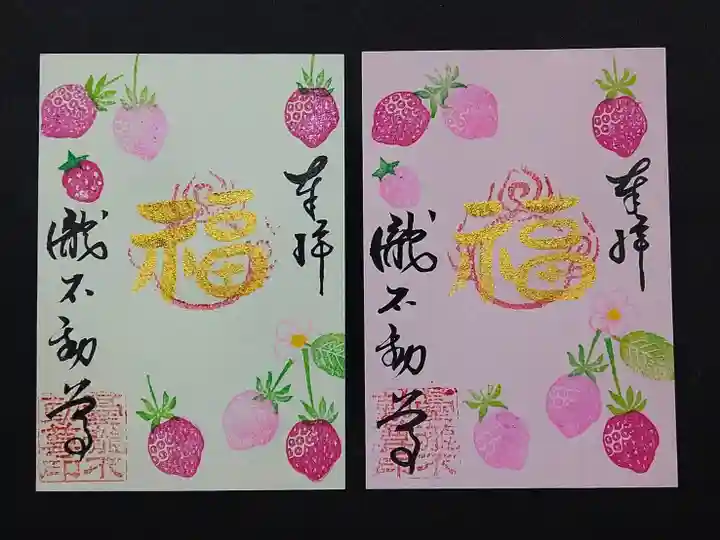 奉拝
福
瀧不動尊
奉拝
福
瀧不動尊